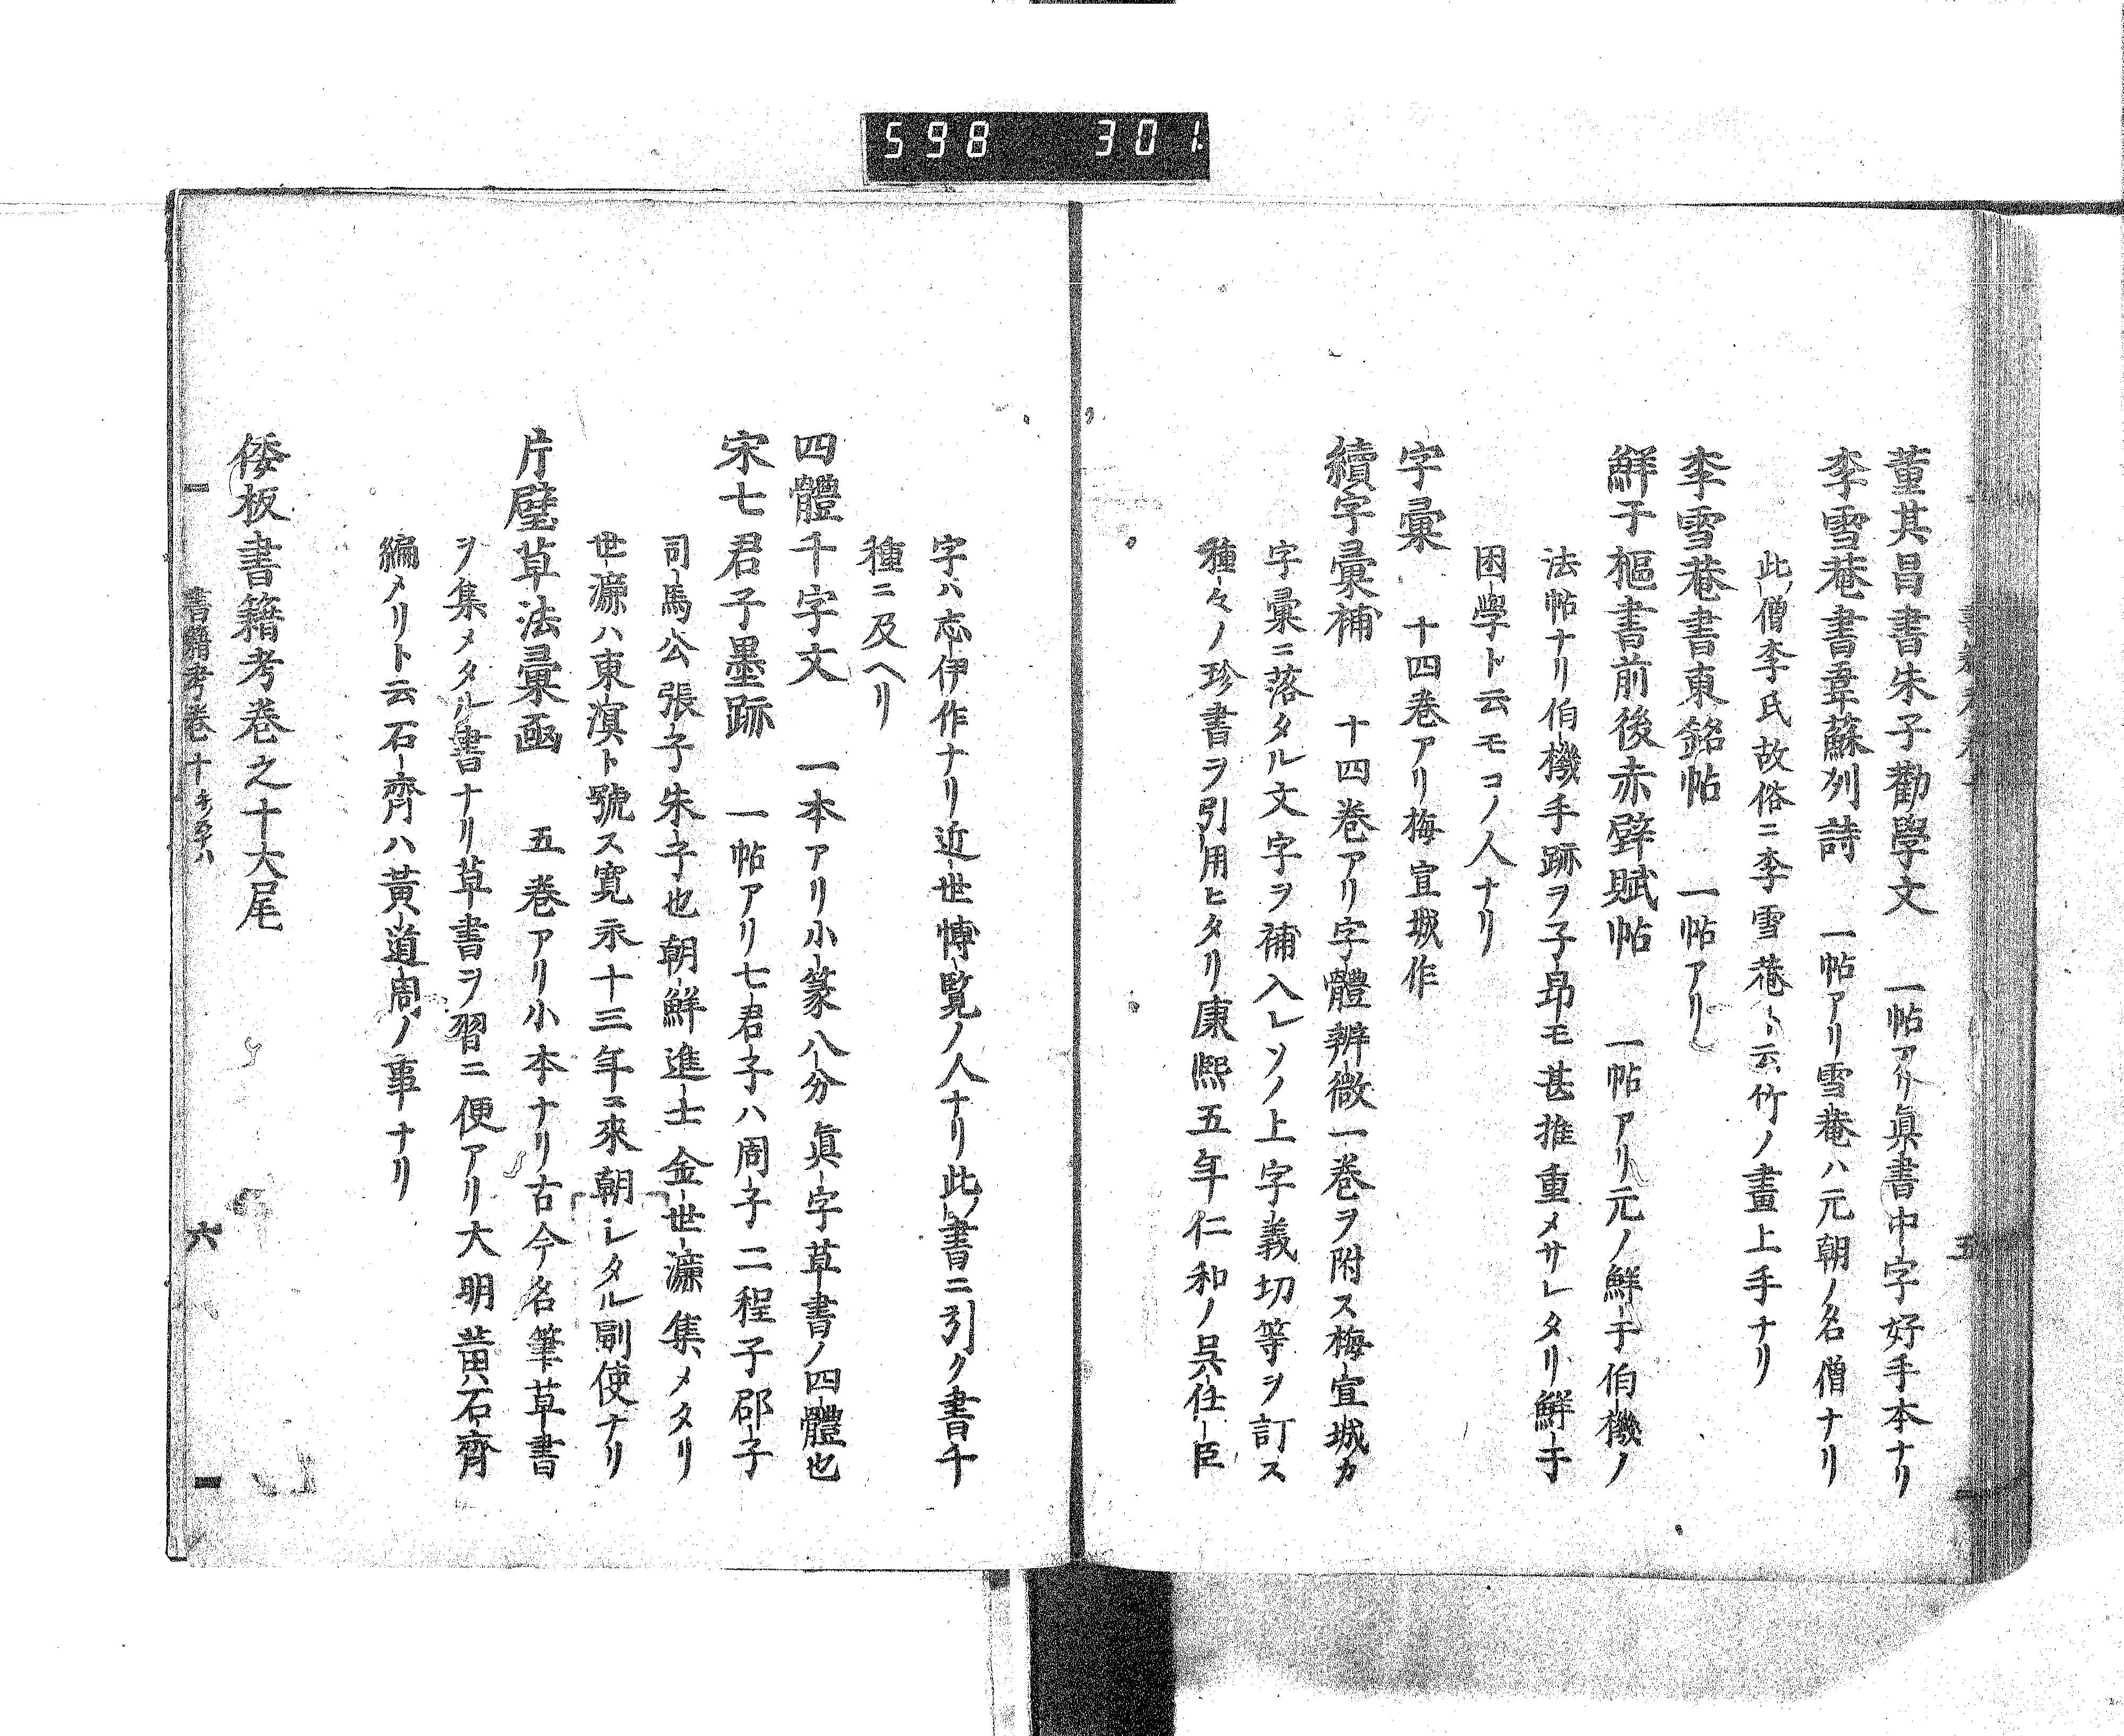 598 301
董其昌書朱子勸學文 一帖アリ眞書中字好手本ナリ
李雪菴書韋蘇列詩 一帖アリ雪菴ハ元朝ノ名僧ナリ
此ノ僧李氏故俗ニ李雪菴ト云竹ノ畫上手ナリ
李雪菴書東銘帖 一帖アリ
鮮于樞書前後赤壁賦帖 一帖アリ元ノ鮮于伯機ノ
法帖ナリ伯機手跡ヲ子昻モ甚推重メサレタリ鮮于
困學ト云モコノ人ナリ
字彙 十四巻アリ梅宣城作
續字彙補 十四巻アリ字體辨微一巻ヲ附ス梅宣城カ
字彙ニ落タル文字ヲ補入レソノ上字義切等ヲ訂ス
種々ノ珍書ヲ引用ヒタリ康熙五年仁和ノ呉任臣
字ハ志伊作ナリ近世慱覧ノ人ナリ此ノ書ニ引ク書千
種ニ及ヘリ
四體千字文 一本アリ小篆八分眞字草書ノ四體也
宋七君子墨跡 一帖アリ七君子ハ周子二程子邵子
司馬公張子朱子也朝鮮進士金世濂集メタリ
世濂ハ東溟ト號ス寛永十三年ニ來朝シタル副使ナリ
片璧草法彙函 五巻アリ小本ナリ古今名筆草書
ヲ集メタル書ナリ草書ヲ習ニ便アリ大明黄石齊
編メリト云石齊ハ黄道周ノ事ナリ
倭板書籍考巻之十大尾
書籍考巻十 六